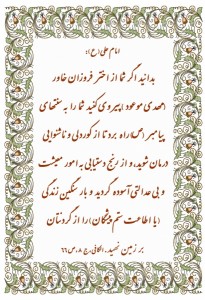 امام علی(ع):
بدانید اگر شما از اختر فروزان خاور
(مهدی موعود) پیروی کنید شما را به سنتهای
پیامبر(ص) راه برد تا از کوردلی و ناشنوایی
درمان شوید، و از رنج دستیابی به امور معیشت
و بی عدالتی آسوده گردید و بار سنگین زندگی
(با اطاعت ستم پیشگان) را از گردنتان
بر زمین نهید. الکافی، ج ۸، ص ۶۶